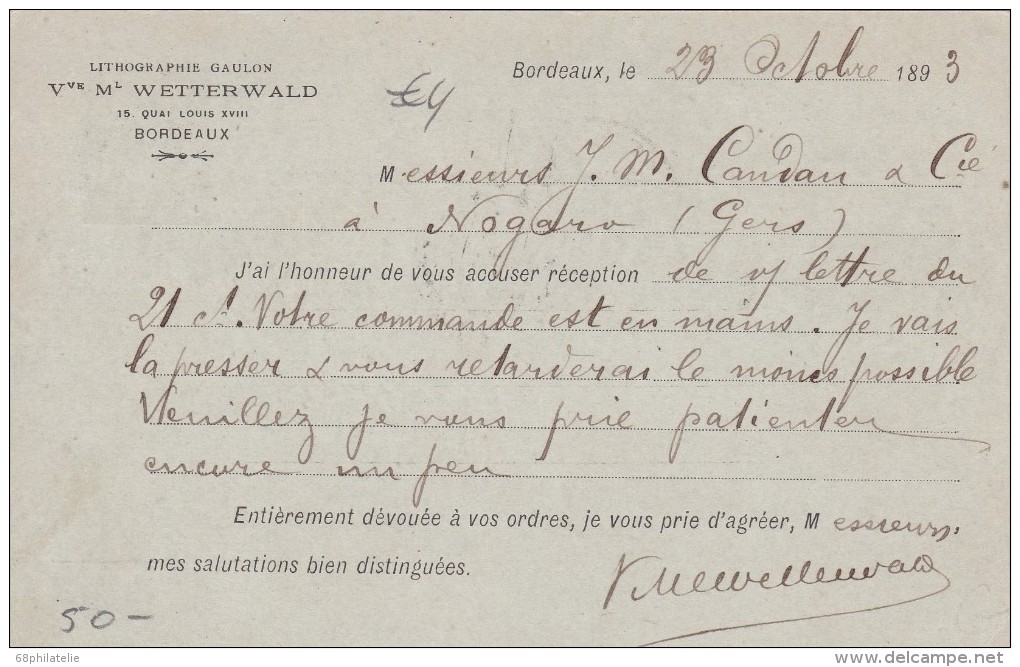 LITHOGRAPHIE GAULON
Vᵛᴱ Mᴸ WETTERWALD
15. QUAI LOUIS XVIII
BORDEAUX
Bordeaux, le 23 Octobre 1893
Messieurs J. M. Candau & Cie
à Nogaro (Gers)
J'ai l'honneur de vous accuser réception de v/ lettre du
21 ct. Votre commande est en mains. Je vais
la presser & vous retarderai le moins possible
Veuillez je vous prie patienter
encore un peu
Entièrement dévouée à vos ordres, je vous prie d'agréer, Messieurs,
mes salutations bien distinguées.
50 -
68philatelie
delcampe.net